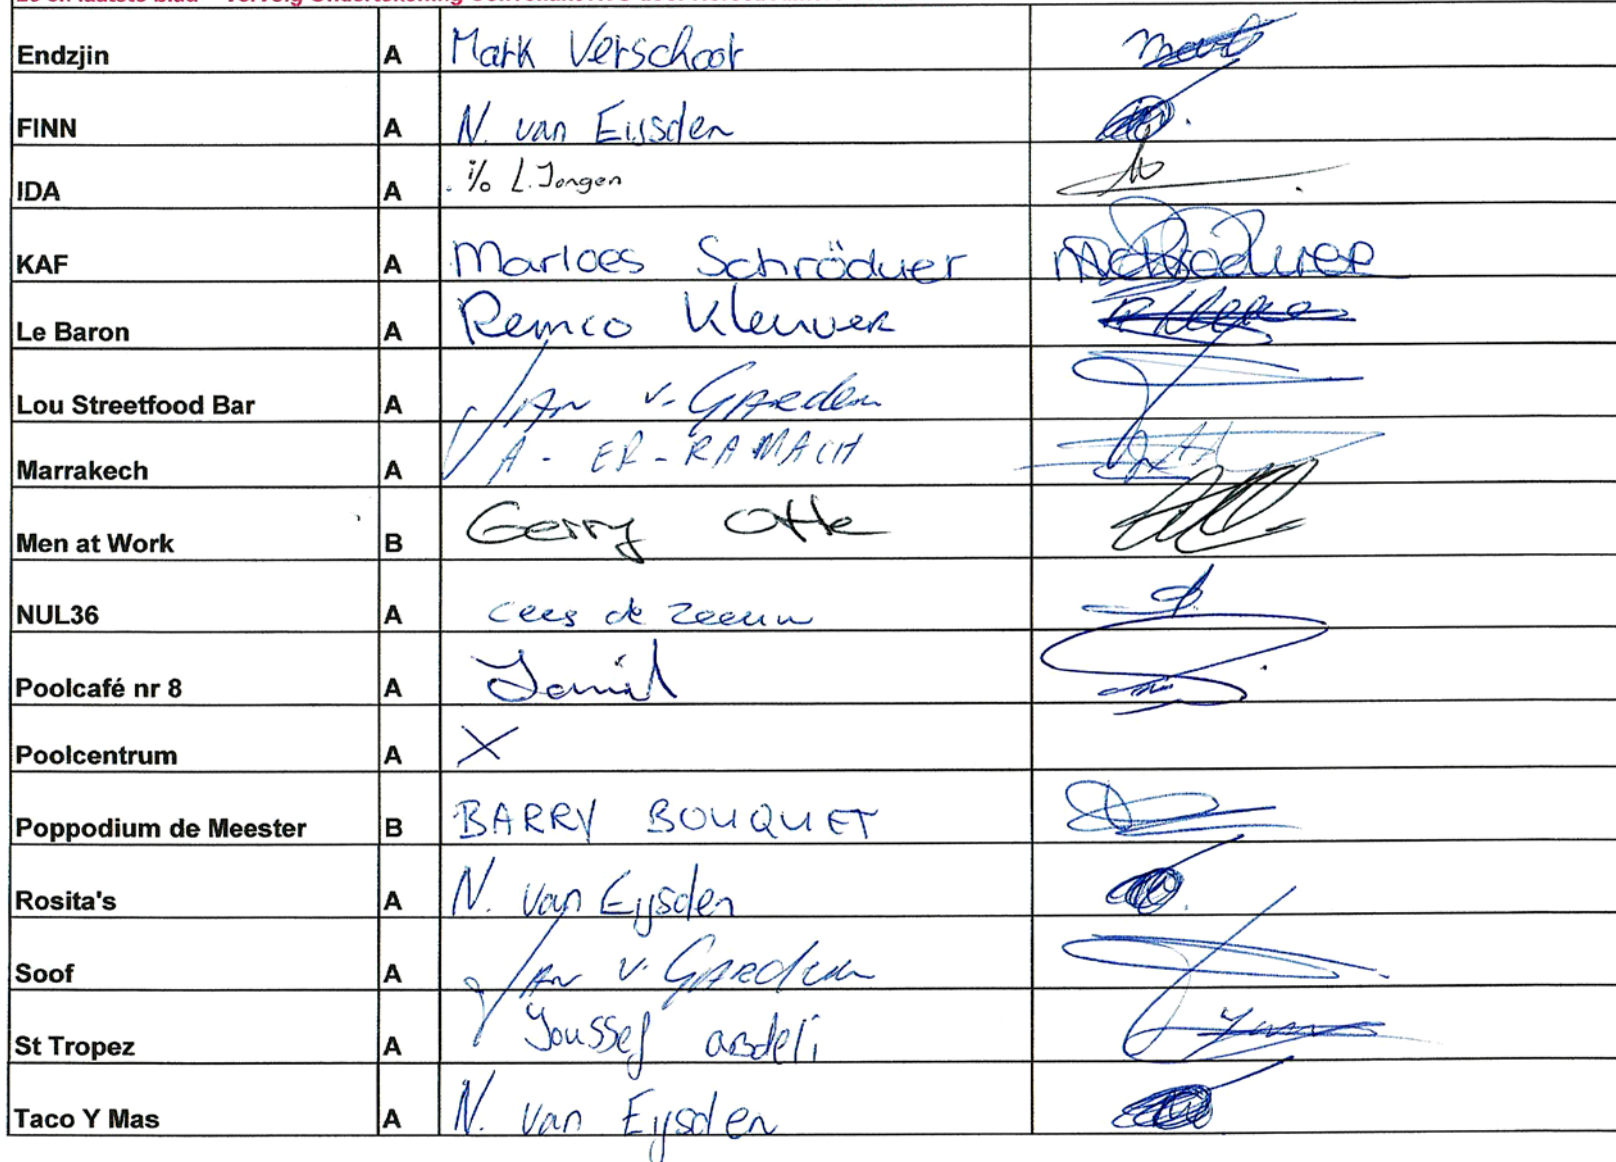 Endzjin A Mark Verschoor
FINN A N. van Eijsden
IDA A i/o L. Jongen
KAF A Marloes Schröduer
Le Baron A Remco Kleuver
Lou Streetfood Bar A Jan v. Garden
Marrakech A A - ER - RAMACH
Men at Work B Gerry Otte
NUL36 A Cees de Zeeuw
Poolcafé nr 8 A Jamil
Poolcentrum A X
Poppodium de Meester B BARRY BOUQUET
Rosita's A N. van Eijsden
Soof A Jan v. Garden
St Tropez A Youssef
Taco Y Mas A N. van Eijsden